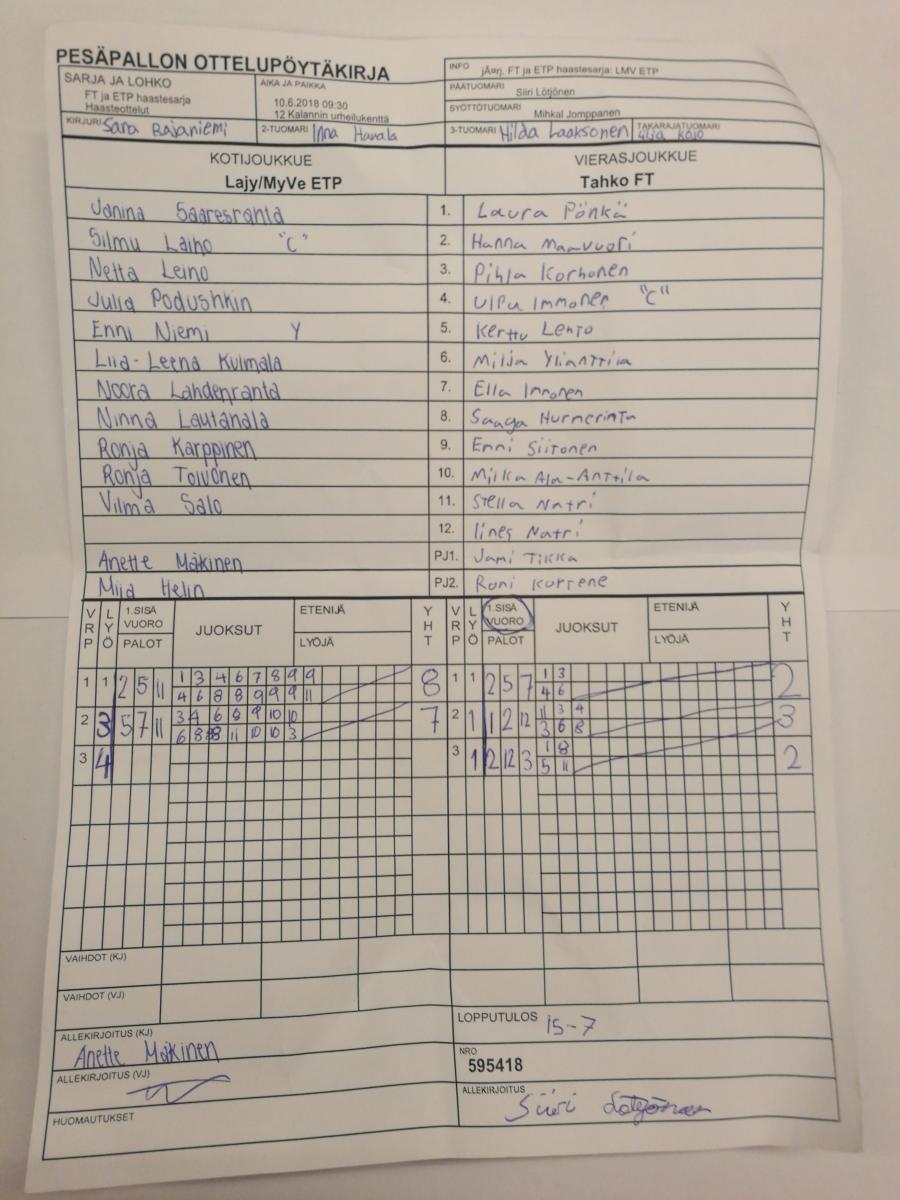 PESÄPALLON OTTELUPÖYTÄKIRJA
SARJA JA LOHKO
FT ja ETP haastesarja
Haasteottelut
AIKA JA PAIKKA
10.6.2018 09:30
12 Kalannin urheilukenttä
INFO jÄrj. FT ja ETP haastesarja: LMV ETP
PÄÄTUOMARI Siiri Lötjönen
SYÖTTÖTUOMARI Mihkal Jomppanen
KIRJURI Sara Rajaniemi
2-TUOMARI Inna Havala
3-TUOMARI Hilda Laaksonen
TAKARAJATUOMARI Lilja Kojo
KOTIJOUKKUE VIERASJOUKKUE
Lajy/MyVe ETP Tahko FT
Janina Saaresranta 1. Laura Pönkä
Silmu Laiho "C" 2. Hanna Maavuori
Netta Leino 3. Pihla Korhonen
Julia Podushkin 4. Ulpu Immonen "C"
Enni Niemi Y 5. Kerttu Lehto
Liia-Leena Kulmala 6. Milja Ylianttila
Noora Lahdenranta 7. Ella Immonen
Ninna Lautanala 8. Saaga Hurmerinta
Ronja Karppinen 9. Enni Siitonen
Ronja Toivonen 10. Milka Ala-Anttila
Vilma Salo 11. Stella Natri
12. Iines Natri
Anette Mäkinen PJ1. Jami Tikka
Miia Helin PJ2. Roni Kurrene
VRP LYÖ 1.SISÄ VUORO PALOT JUOKSUT ETENIJÄ LYÖJÄ YHT VRP LYÖ 1.SISÄ VUORO PALOT JUOKSUT ETENIJÄ LYÖJÄ YHT
1 1 2 5 11 1 3 4 6 7 8 9 9 8 1 1 2 5 7 1 3 2
4 6 8 8 9 9 9 11 4 6
2 3 5 7 11 3 4 6 8 9 10 10 7 2 1 1 2 12 11 3 4 3
6 8 8 11 10 10 3 3 6 8
3 4 3 1 2 12 3 1 8 2
5 11
VAIHDOT (KJ)
VAIHDOT (VJ)
ALLEKIRJOITUS (KJ)
Anette Mäkinen
LOPPUTULOS 15-7
NRO
595418
ALLEKIRJOITUS (VJ)
ALLEKIRJOITUS
Siiri Lötjönen
HUOMAUTUKSET